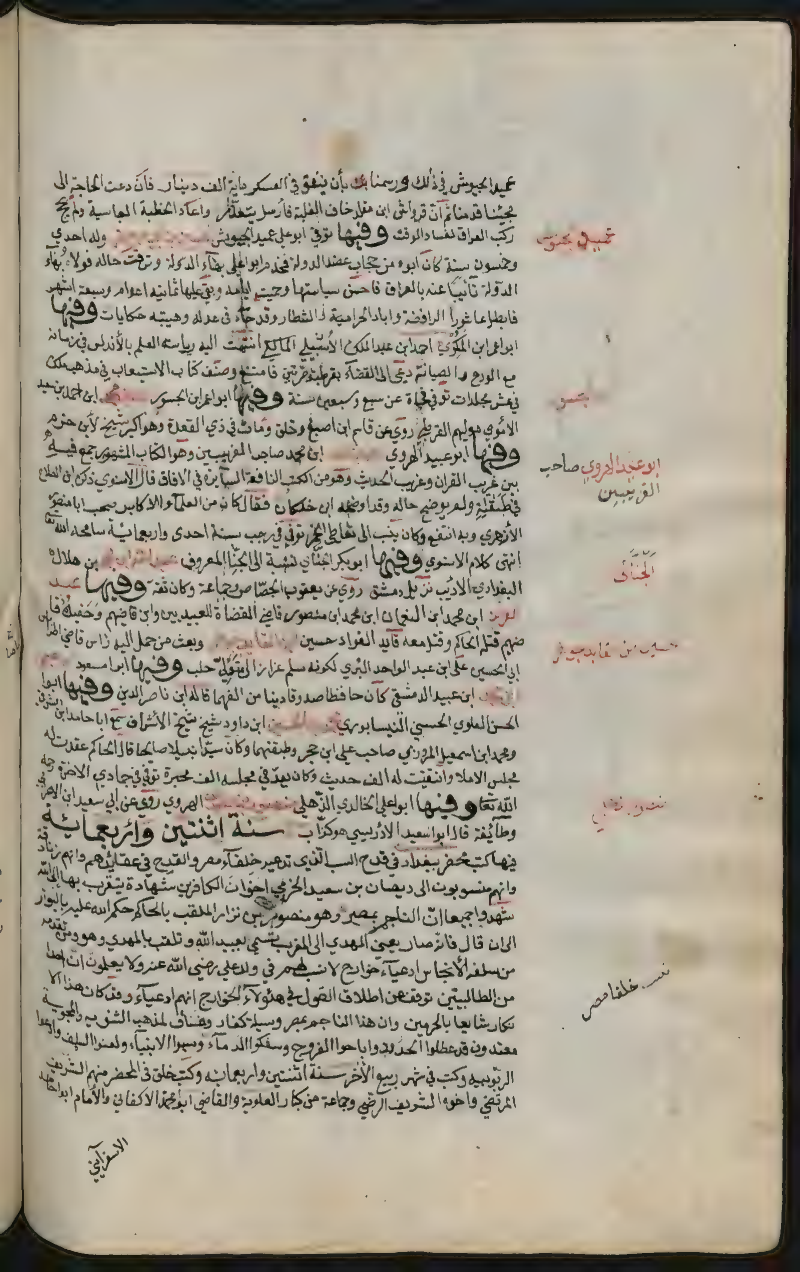 عميد الجيوش في ذلك ورسمنا بأن ينفق في العسكر مائة الف دينار فان دعت الحاجة الى
قدمنا ثم ان قرواش ابن مقلد خاف الغلبة فأرسل يتعذر واعاد الخطبة العباسية ولم يحج
ركب العراق لفساد الوقت وفيها توفي ابو علي عميد الجيوش وله احدى
وخمسون سنة كان ابوه من حجاب عضد الدولة فخدم ابو علي بهاء الدولة وترقت حاله فولاه بهاء
الدولة نائبا عنه بالعراق فاحسن سياستها وبقي عليها ثمانية اعوام وسبعة اشهر
فابطل عاشوراء الرافضة واباد الحرامية والشطار وقد جاء في عدله وهيبته حكايات وفيها
ابو عمر ابن المكوي احمد ابن عبد الملك الاشبيلي المالكي انتهت اليه رياسة العلم بالأندلس في زمانه
مع الورع والصيانة دعي الى القضاء بقرطبة مرتين فامتنع وصنف كتاب الاستيعاب في مذهب ملك
في عشر مجلدات توفي فجأة عن سبع وسبعين سنة وفيها ابو عمر ابن الجسور ابن احمد ابن سعيد
الاموي مولاهم القرطبي روى عن قاسم ابن اصبغ وخلق ومات في ذي القعدة وهو اكبر شيخ لابن حزم
وفيها ابو عبيد الهروي ابن محمد صاحب الغريبين وهو الكتاب المشهور جمع فيه
بين غريب القران وغريب الحديث وهو من الكتب النافعة السايرة في الافاق قال الاسنوي ذكره ابن الصلاح
في طبقاته ولم يوضح حاله وقد اوضحه ابن خلكان فقال كان من العلماء الاكابر صحب ابا منصور
الأزهري وبه انتفع وكان ينسب الى تعاطي الخمر توفي في رجب سنة احدى واربعمائة سامحه الله تعا
انتهى كلام الاسنوي وفيها ابو بكر الحنائي نسبة الى الحنا المعروف عبد الله ابن هلال
البغدادي الاديب نزيل دمشق روى عن يعقوب الجصاص وجماعة وكان ثقة وفيها عبد
العزيز ابن محمد ابن النعمان ابن محمد ابن منصور قاضي القضاة للعبيديين وابن قاضيهم وحفيد قاضيهم
قتله الحاكم وقتل معه قايد القواد حسين ابن القايد وبعث من حمل اليه راس قاضي
ابي الحسين علي ابن عبد الواحد البري لكونه سلم عزاز الى متولي حلب وفيها ابو مسعود
ابن عبيد الدمشقي كان حافظا صدوقا دينا من الفهما قاله ابن ناصر الدين وفيها ابو
الحسن العلوي الحسني النيسابوري ابن داود شيخ الأشراف سمع ابا حامد ابن الشرقي
ومحمد ابن اسمعيل المروزي صاحب علي ابن حجر وطبقتهما وكان سيدا نبيلا صالحا قال الحاكم عقدت له
مجلس الاملا وانتقيت له الف حديث وكان يعد في مجلسه الف محبرة توفي في جمادى الاخرة رحمه
الله تعا وفيها ابو علي الخالدي الذهلي الهروي روى عن ابي سعيد ابن الاعرابي
وطائفة قال ابو سعيد الادريسي هو كذاب سنة اثنتين واربعمائة
فيها كتب محضر ببغداد في قدح النسب الذي تدعيه خلفاء مصر والقدح في عقائدهم وانهم زنادقة
وانهم منسوبون الى ديصان بن سعيد الخرمي اخوان الكافرين شهادة يتقرب بها الى الله
شهدوا جميعا ان الناجم بمصر وهو منصور بن نزار الملقب بالحاكم حكم الله عليه بالبوار
الى ان قال فانه صار يعني المهدي الى المغرب تسمى لعبيد الله وتلقب بالمهدي وهو ومن تقدمه
من سلفه الأنجاس ادعياء خوارج لا نسب لهم في ولد علي رضي الله عنه ولا يعلمون ان احدا
من الطالبيين توقف عن اطلاق القول في هؤلاء الخوارج انهم ادعياء وقد كان هذا الا
نكار شايعا بالحرمين وان هذا الناجم بمصر وسيلة كفار وفساق لمذهب الثنوية والمجوسية
معتقدون قد عطلوا الحدود واباحوا الفروج وسفكوا الدماء وسبوا الانبياء ولعنوا السلف وادعوا
الربوبية وكتب في شهر ربيع الآخر سنة اثنتين واربعمائة وكتب خلق في المحضر منهم الشريف
المرتضي واخوه الشريف الرضي وجماعة من كبار العلوية والقاضي ابو محمد الاكفاني والأمام ابو حامد
الاسفرايني
عميد الجيوش
ابو عبيد الهروي صاحب
الغريبين
الحنائي
حسين بن القايد جوهر
نسب خلفا مصر